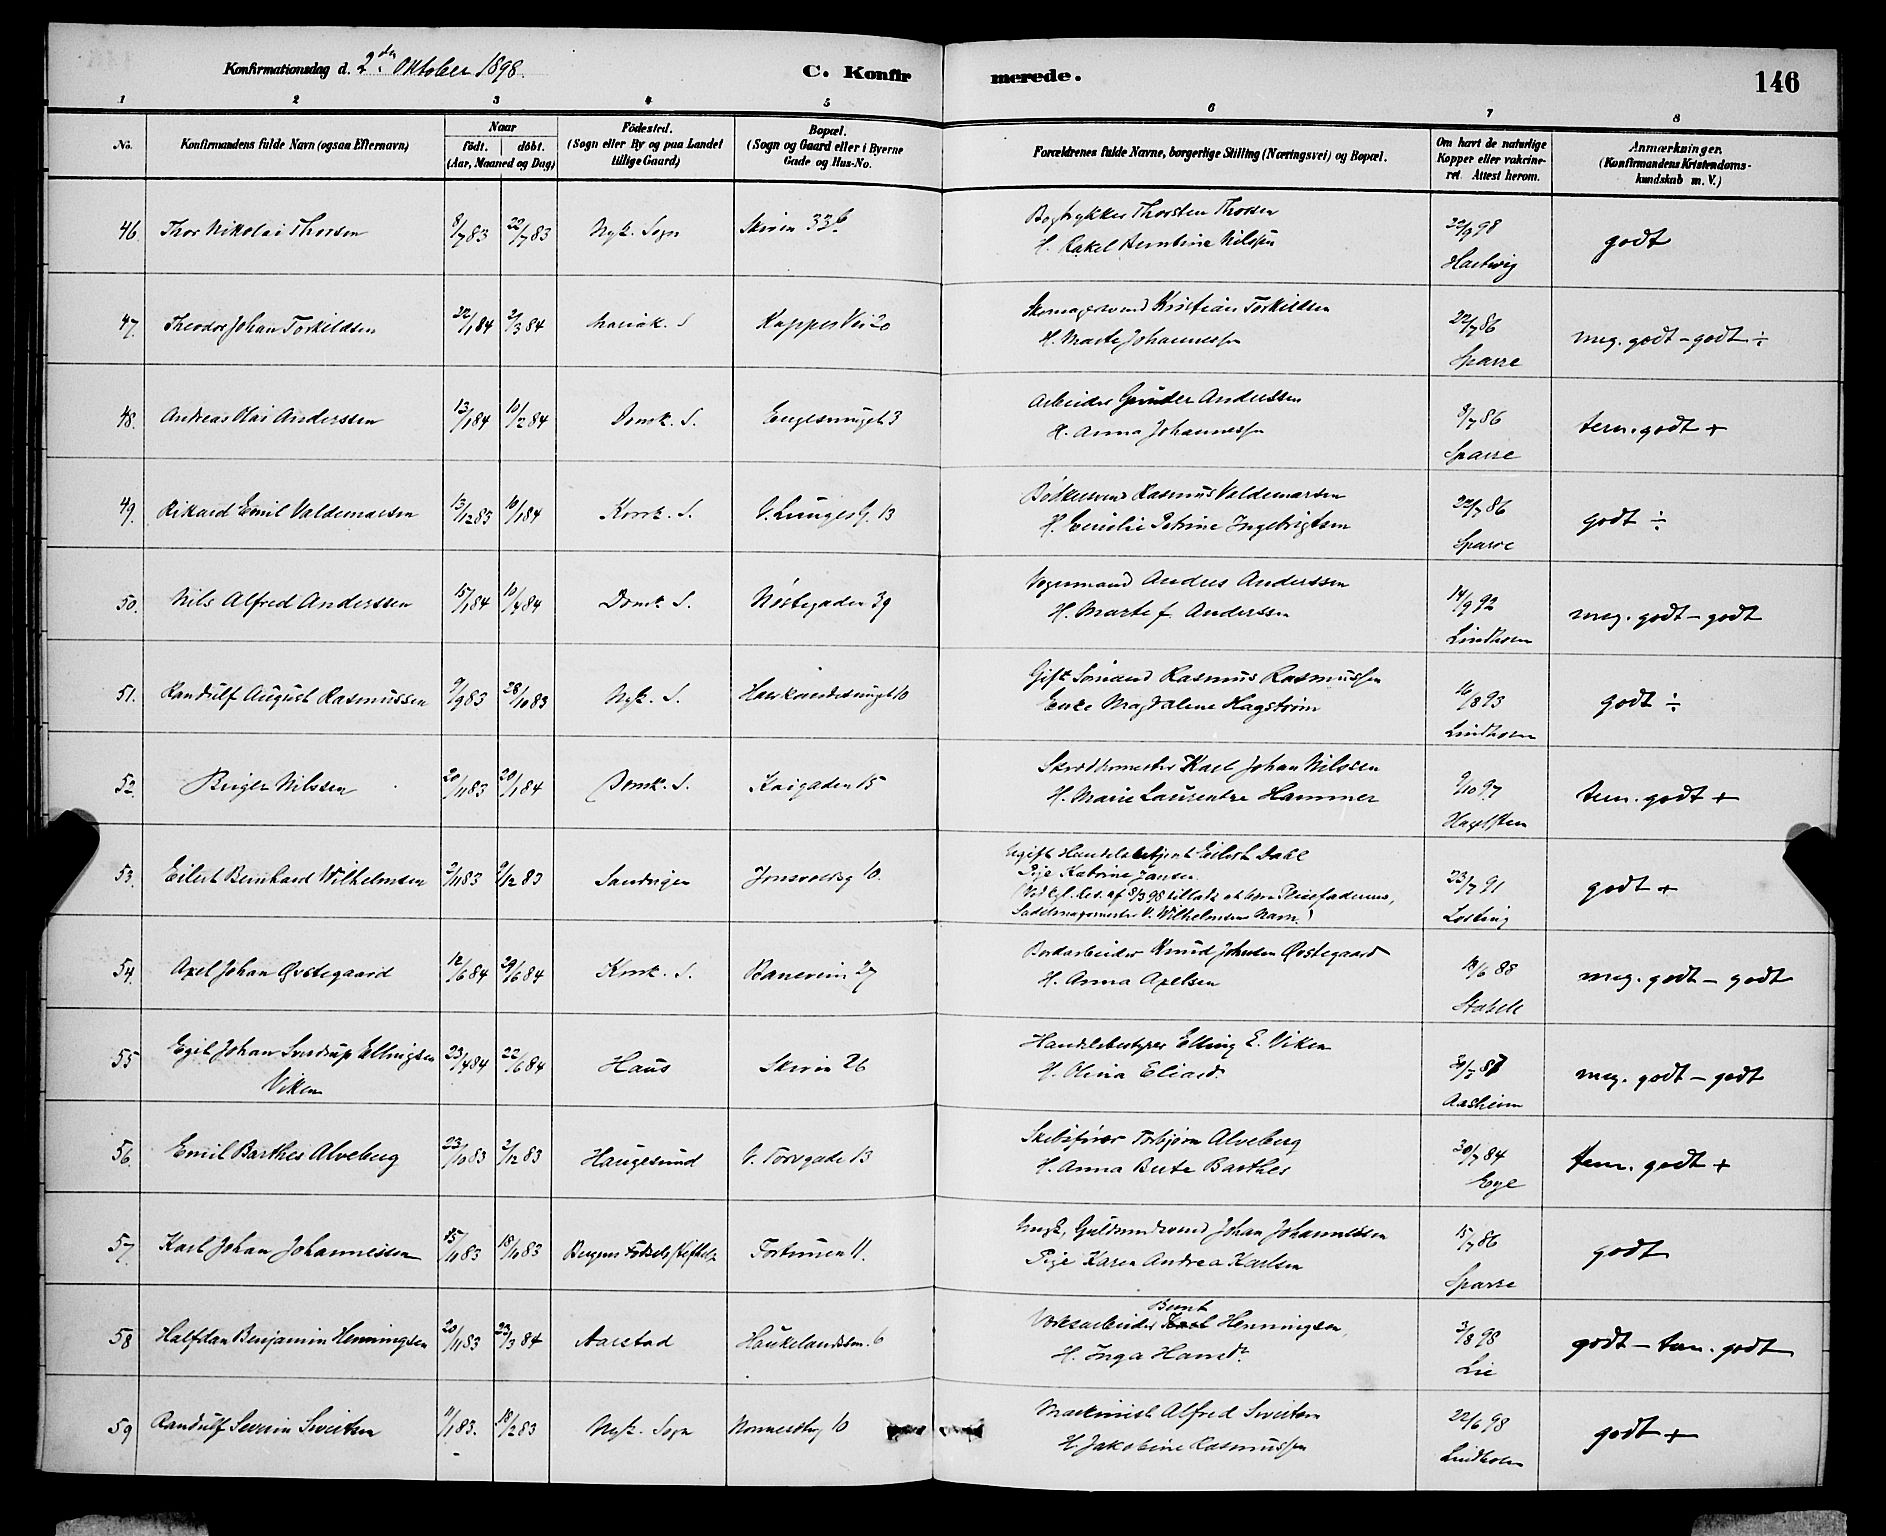 Konfirmationsdag d. 2den Oktober 1898.
C. Konfirmerede.
146
1 2 3 4 5 6 7 8
No. Konfirmandens fulde Navn (ogsaa Efternavn) Naar født. døbt. (Aar, Maaned og Dag) Fødested. (Sogn eller By og paa Landet tillige Gaard) Bopæl. (Sogn og Gaard eller i Byerne Gade og Hus-No. Forældrenes fulde Navne, borgerlige Stilling (Næringsvei) og Bopæl. Om havt de naturlige Kopper eller vakcineret. Attest herom. Anmærkninger. (Konfirmandens Kristendomskundskab m. V.)
46. Thor Nikolai Thorsen 8/7 83 22/7 83 Nyk. Sogn Skiven 33b Bogtrykker Thorsten Thorsen 20/9 98 godt
H. Rakel Berntine Nilsen Hartwig
47. Theodor Johan Torkildsen 22/1 84 2/3 84 Mariak. S Kappes Vei 20 Skomagersvend Kristian Torkildsen 22/7 86 meg. godt - godt ÷
H. Marte Johannessen Sparre
48. Andreas Hai Anderssen 13/1 84 10/2 84 Domk. S. Engesmuget 3 Arbeider Gunder Anderssen 8/7 86 tem. godt +
H. Anna Johannessen Sparre
49. Rikard Emil Valdemarsen 13/12 83 10/1 84 Korsk. S. V. Lunges G. 13 Bødkersvend Rasmus Valdemarsen 22/7 86 godt ÷
H. Emilie Petrine Ingebrigtsen Sparre
50. Nils Alfred Anderssen 15/1 84 10/4 84 Domk. S. Nøstegaden 39 Vognmand Anders Anderssen 14/9 92 meg. godt - godt
H. Marte f. Anderssen Lindholm
51. Randulf August Rasmussen 9/9 83 28/10 83 Nyk. S. 10 Gift Sømand Rasmus Rasmussen 16/8 93 godt ÷
Enke Magdalene Hagstrøm Lindholm
52. Birger Nilssen 20/11 83 20/1 84 Domk. S. Kaigaden 15 Karl Johan Nilssen 9/10 97 tem. godt +
H. Marie Laurentze Hammer
53. Eilert Bernhard Wilhelmsen 2/11 83 9/12 83 Sandvigen Jonsvoldsg 10. Ugift Handelsbetjent Eilert Dahl 23/7 91 godt +
Pige Katrine Jansen
(Ved kgl. Res. af 8/3 98 tilladt at bære Pleiefaderens,
Sadelmagermester V. Wilhelmsens Navn.) Losting
54. Axel Johan Øvstegaard 12/6 84 29/6 84 Korsk. S. Baneveien 27 Bordarbeider Knud Johnsen Øvstegaard 18/6 88 meg. godt - godt
H. Anna Axelsen Stabell
55 Egil Johan Sverdrup Ellingsen 23/4 84 22/6 84 Haus Skiven 26 Handelsbestyrer Elling E. Viken 31/5 87 meg. godt - godt
Viken H. Olina Eliasd. Aasheim
56. Emil Barthes Alveberg 23/10 83 2/12 83 Haugesund V. Torvgade 13 Skibsfører Torbjørn Alveberg 30/7 84 tem. godt +
H. Anna Berte Barthes Eye
57. Karl Johan Johannessen 15/11 83 18/11 83 Bergens Fødselsstiftelse Fortunen 11. Ungk. Guldsmedsvend Johan Johannessen 15/7 86 godt
Pige Karen Andrea Karlsen Sparre
58 Halfdan Benjamin Henningsen 20/11 83 23/3 84 Aarstad Haukelandsm. 6 Bernt Henningsen, 3/8 98 godt - tem. godt
H. Inga Hansdr. Lie
59 Randulf Severin Sivertsen 11/1 83. 18/2 83 Nyk. Sogn 10 Maskinist Alfred Sivertsen 22/6 98 godt +
H. Jakobine Rasmussen Lindholm